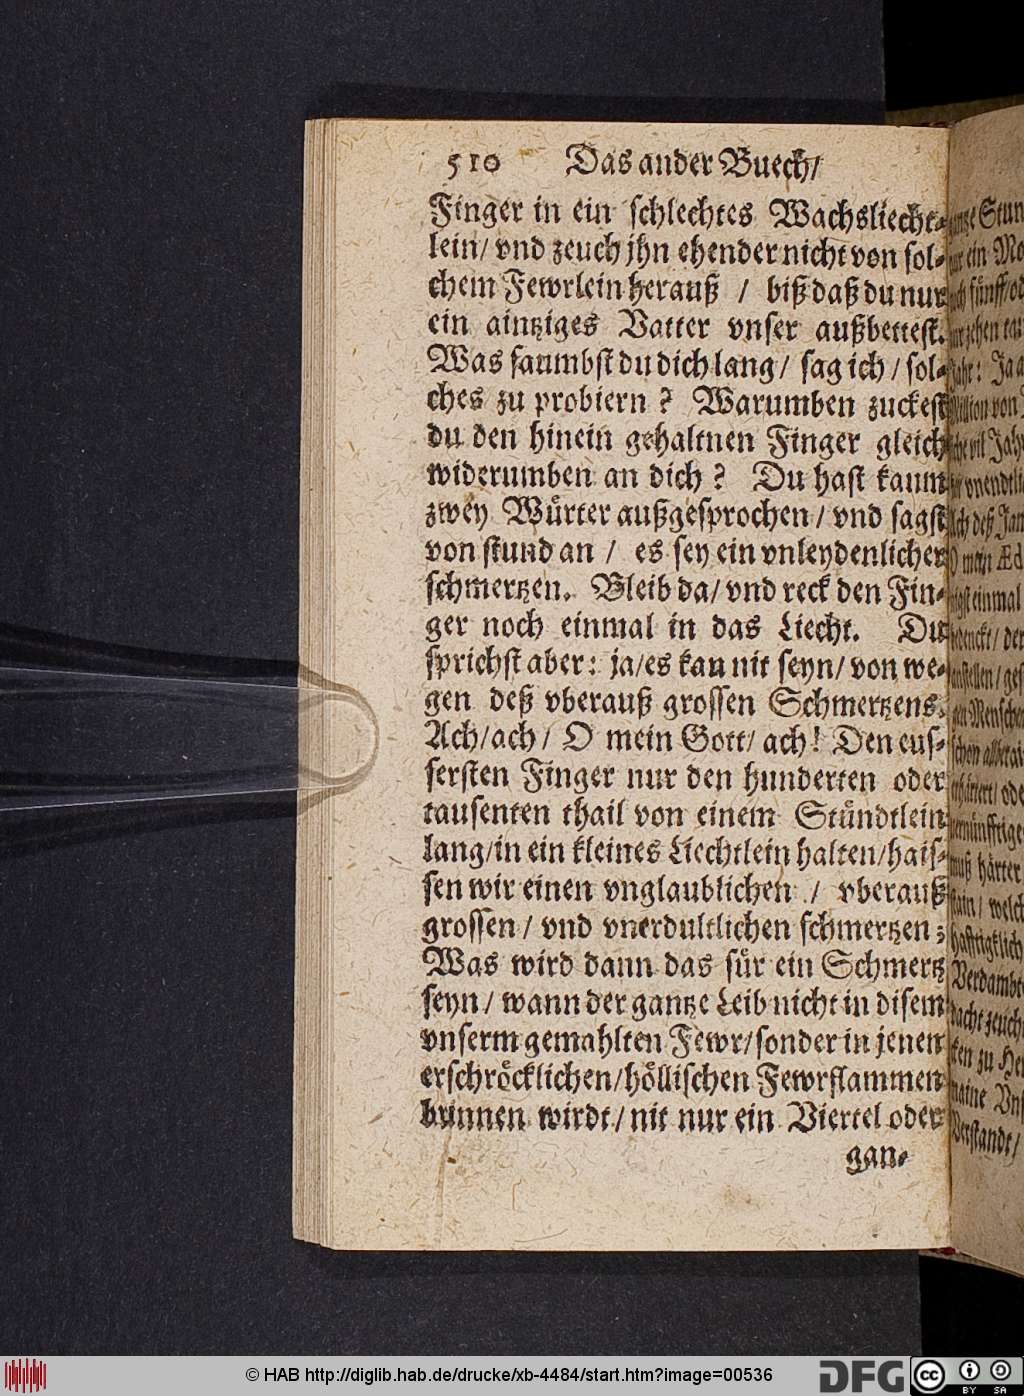 510 Das ander Buech/
Finger in ein schlechtes Wachsliecht-
lein/ vnd zeuch jhn ehender nicht von sol-
chem Fewrlein herauß / biß daß du nur
ein aintziges Vatter vnser außbettest.
Was saumbst du dich lang/ sag ich/ sol-
ches zu probiern ? Warumben zuckest
du den hinein gehaltnen Finger gleich
widerumben an dich ? Du hast kaum
zwey Würter außgesprochen/ vnd sagst
von stund an / es sey ein vnleydenlicher
schmertzen. Bleib da/ vnd reck den Fin-
ger noch einmal in das Liecht. Du
sprichst aber: ja/es kan nit seyn/ von we-
gen deß vberauß grossen Schmertzens.
Ach/ach/ O mein Gott/ ach! Den eus-
sersten Finger nur den hunderten oder
tausenten thail von einem Stündtlein
lang/in ein kleines Liechtlein halten/hais-
sen wir einen vnglaublichen / vberauß
grossen/ vnd vnerdultlichen schmertzen:
Was wird dann das für ein Schmertz
seyn/ wann der gantze Leib nicht in disem
vnserm gemahlten Fewr/sonder in jenen
erschröcklichen/höllischen Fewrflammen
brinnen wirdt/ nit nur ein Viertel oder
gan-
© HAB http://diglib.hab.de/drucke/xb-4484/start.htm?image=00536
DFG
cc
BY SA